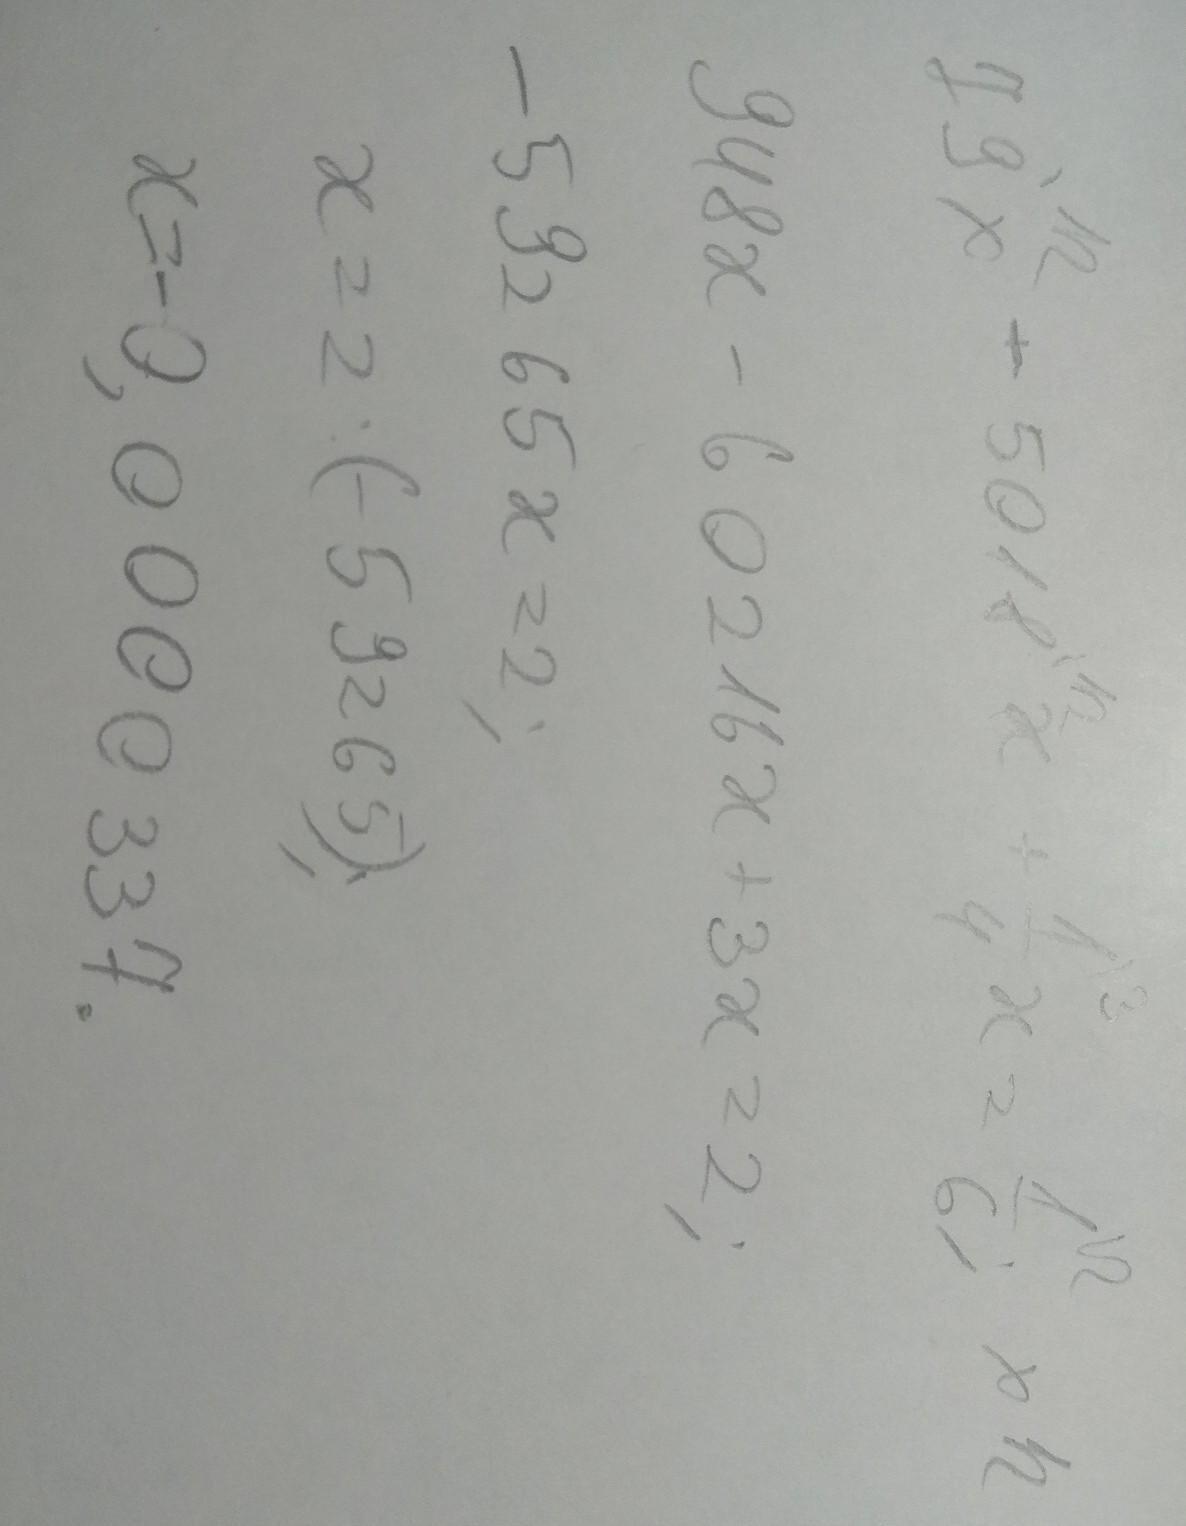 79\¹²x - 5018\¹²x + 1/4\³x = 1/6\²; x 12
948x - 60216x + 3x = 2;
-59265x = 2;
x = 2 : (-59265);
x = -0,0000337.